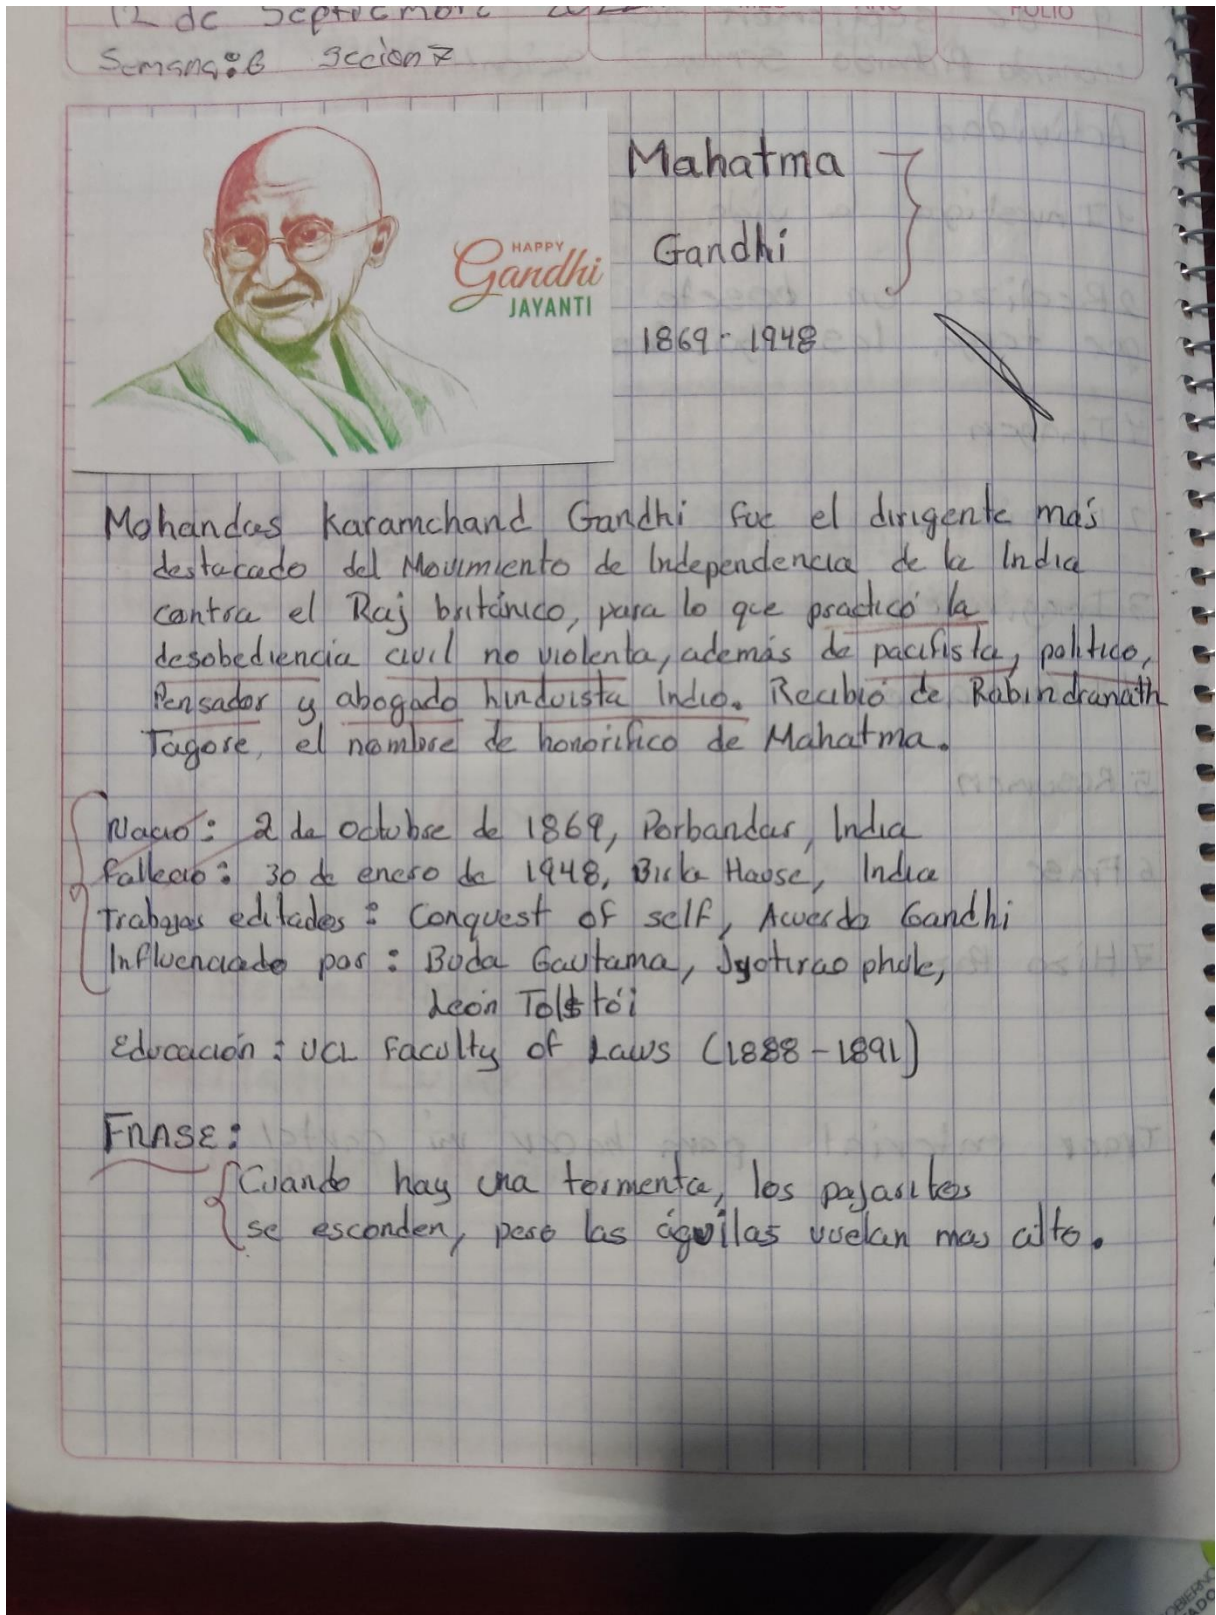 12 de Septiembre
FOLIO
Semana: 6 Seccion 7
HAPPY
Gandhi
JAYANTI
Mahatma
Gandhi
1869 - 1948
Mohandas Karamchand Gandhi fue el dirigente más
destacado del Movimiento de Independencia de la India
contra el Raj británico, para lo que practicó la
desobediencia civil no violenta, además de pacifista, político,
Pensador y abogado hinduista Indio. Recibió de Rabindranath
Tagore, el nombre de honorífico de Mahatma.
Nació: 2 de octubre de 1869, Porbandar, India
Falleció: 30 de enero de 1948, Birla House, India
Trabajos editados: Conquest of self, Acuerdo Gandhi
Influenciado por: Buda Gautama, Jyotirao phule,
León Tolstói
Educación: UCL Faculty of Laws (1888-1891)
FRASE:
Cuando hay una tormenta, los pajaritos
se esconden, pero las águilas vuelan mas alto.